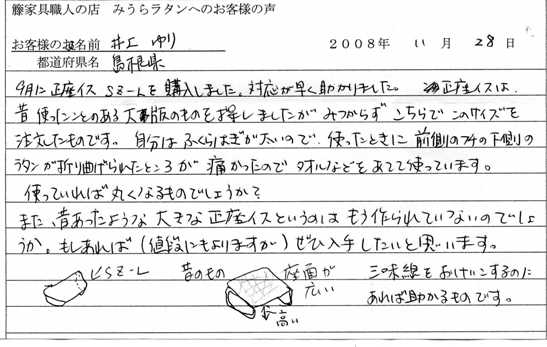 籐家具職人の店 みうらラタンへのお客様の声
お客様のお名前 井上 ゆり 2008年 11月 28日
都道府県名 島根県
9月に正座イス SZ-Lを購入しました。対応が早く助かりました。 正座イスは、
昔使ったことのある大判版のものを探しましたがみつからず こちらで このサイズを
注文したものです。 自分は ふくらはぎが太いので、使ったときに 前側のフチの下側の
ラタンが折り曲げられたところが 痛かったので タオルなどをあてて使っています。
使っていれば丸くなるものでしょうか?
また、昔あったような 大きな 正座イスというのは もう作られていないのでしょ
うか。もしあれば(値段にもよりますが)ぜひ入手したいと思います。
SZ-L 昔のもの 座面が 三味線をおけいこするのに
広い あれば助かるものです。
高い